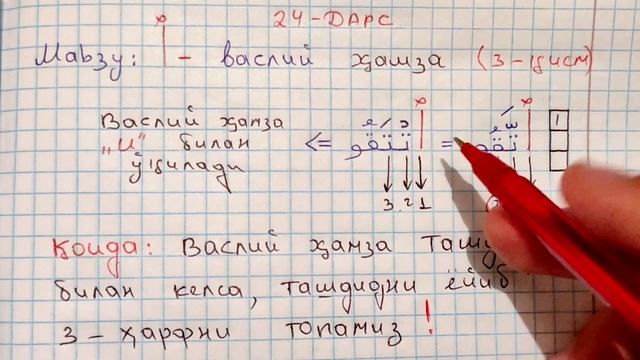 24-ДАРС
Мавзу: ٱ - васлий ҳамза (3-қисм)
Васлий ҳамза
„И" билан <= ٱتْتَقُو = ٱتَّقُو 1
ўқилади
3 2 1
Қоида: Васлий ҳамза
билан келса, ташдидни ёйиб
3-ҳарфни топамиз!